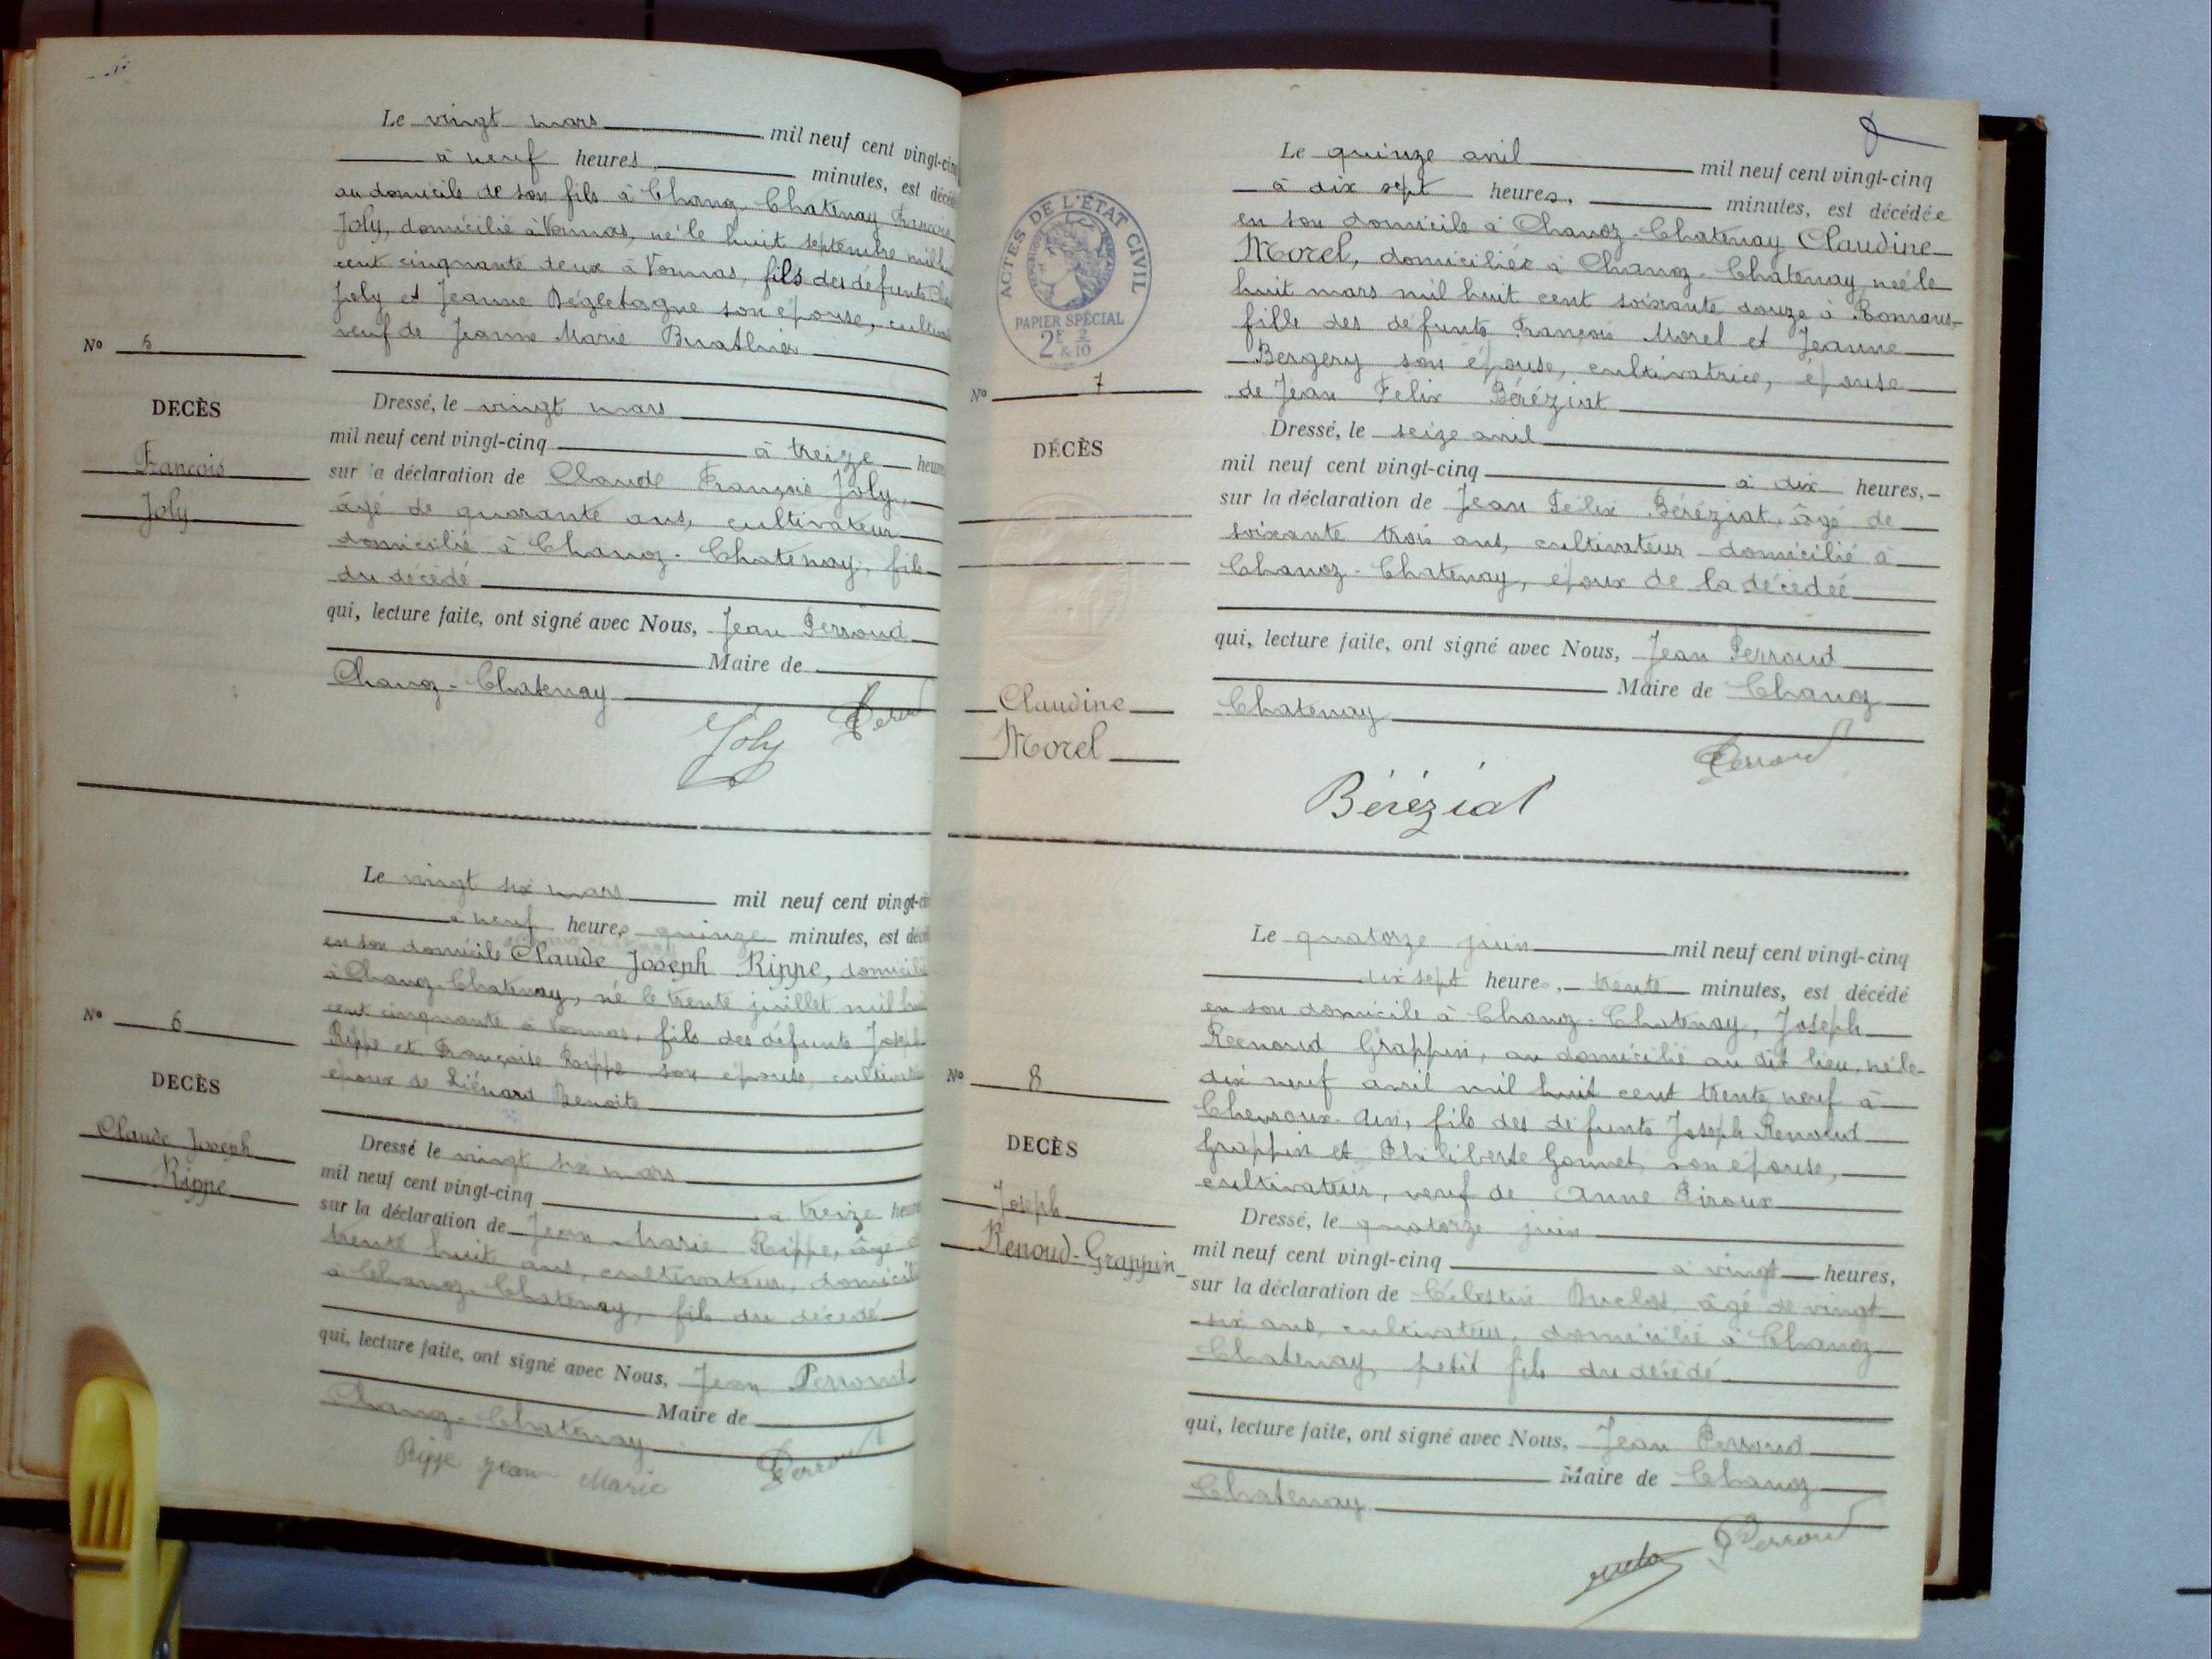 Le vingt mars mil neuf cent vingt-cinq
à neuf heures minutes, est décédé
au domicile de son fils à Chanoz-Chatenay François
Joly, domicilié à Vonnas, né le huit septembre mil huit
cent cinquante deux à Vonnas, fils des défunts
Joly et Jeanne son épouse, cultivateur
veuf de Jeanne Marie
No 5
DECÈS
François
Joly
Dressé, le vingt mars
mil neuf cent vingt-cinq à treize heures
sur la déclaration de Claude François Joly,
âgé de quarante ans, cultivateur
domicilié à Chanoz-Chatenay, fils
du décédé
qui, lecture faite, ont signé avec Nous, Jean Perroud
Maire de
Chanoz-Chatenay
Joly Perroud
Le vingt six mars mil neuf cent vingt-cinq
à neuf heures quinze minutes, est décédé
en son domicile Claude Joseph Rippe, domicilié
à Chanoz-Chatenay, né le trente juillet mil huit
cent cinquante à Vonnas, fils des défunts Joseph
Rippe et Françoise Rippe son épouse, cultivateur
époux de Liénard Benoite
No 6
DECÈS
Claude Joseph
Rippe
Dressé le vingt six mars
mil neuf cent vingt-cinq à treize heures
sur la déclaration de Jean Marie Rippe, âgé de
trente huit ans, cultivateur, domicilié
à Chanoz-Chatenay, fils du décédé
qui, lecture faite, ont signé avec Nous, Jean Perroud
Maire de
Chanoz-Chatenay
Rippe Jean Marie Perroud
8
ACTES DE L'ÉTAT CIVIL
PAPIER SPÉCIAL
2F & 2/10
Le quinze avril mil neuf cent vingt-cinq
à dix sept heures, minutes, est décédée
en son domicile à Chanoz-Chatenay Claudine
Morel, domiciliée à Chanoz-Chatenay, née le
huit mars mil huit cent soixante douze à Romans,
fille des défunts François Morel et Jeanne
Bergery son épouse, cultivatrice, épouse
de Jean Felix Béréziat
No 7
DÉCÈS
Claudine
Morel
Dressé, le seize avril
mil neuf cent vingt-cinq à dix heures,
sur la déclaration de Jean Félix Béréziat, âgé de
soixante trois ans, cultivateur domicilié à
Chanoz-Chatenay, époux de la décédée
qui, lecture faite, ont signé avec Nous, Jean Perroud
Maire de Chanoz
Chatenay
Perroud
Béréziat
Le quatorze juin mil neuf cent vingt-cinq
dix sept heures, trente minutes, est décédé
en son domicile à Chanoz-Chatenay, Joseph
Renoud Grappin, au domicilié au dit lieu, né le
dix neuf avril mil huit cent trente neuf à
Chevroux-Ain, fils des défunts Joseph Renoud
Grappin et Philiberte Gonnet, son épouse,
cultivateur, veuf de Anne Piroux
No 8
DECÈS
Joseph
Renoud-Grappin
Dressé, le quatorze juin
mil neuf cent vingt-cinq à vingt heures,
sur la déclaration de Célestin Duclos, âgé de vingt
six ans, cultivateur, domicilié à Chanoz
Chatenay, petit fils du décédé
qui, lecture faite, ont signé avec Nous, Jean Perroud
Maire de Chanoz
Chatenay
Perroud